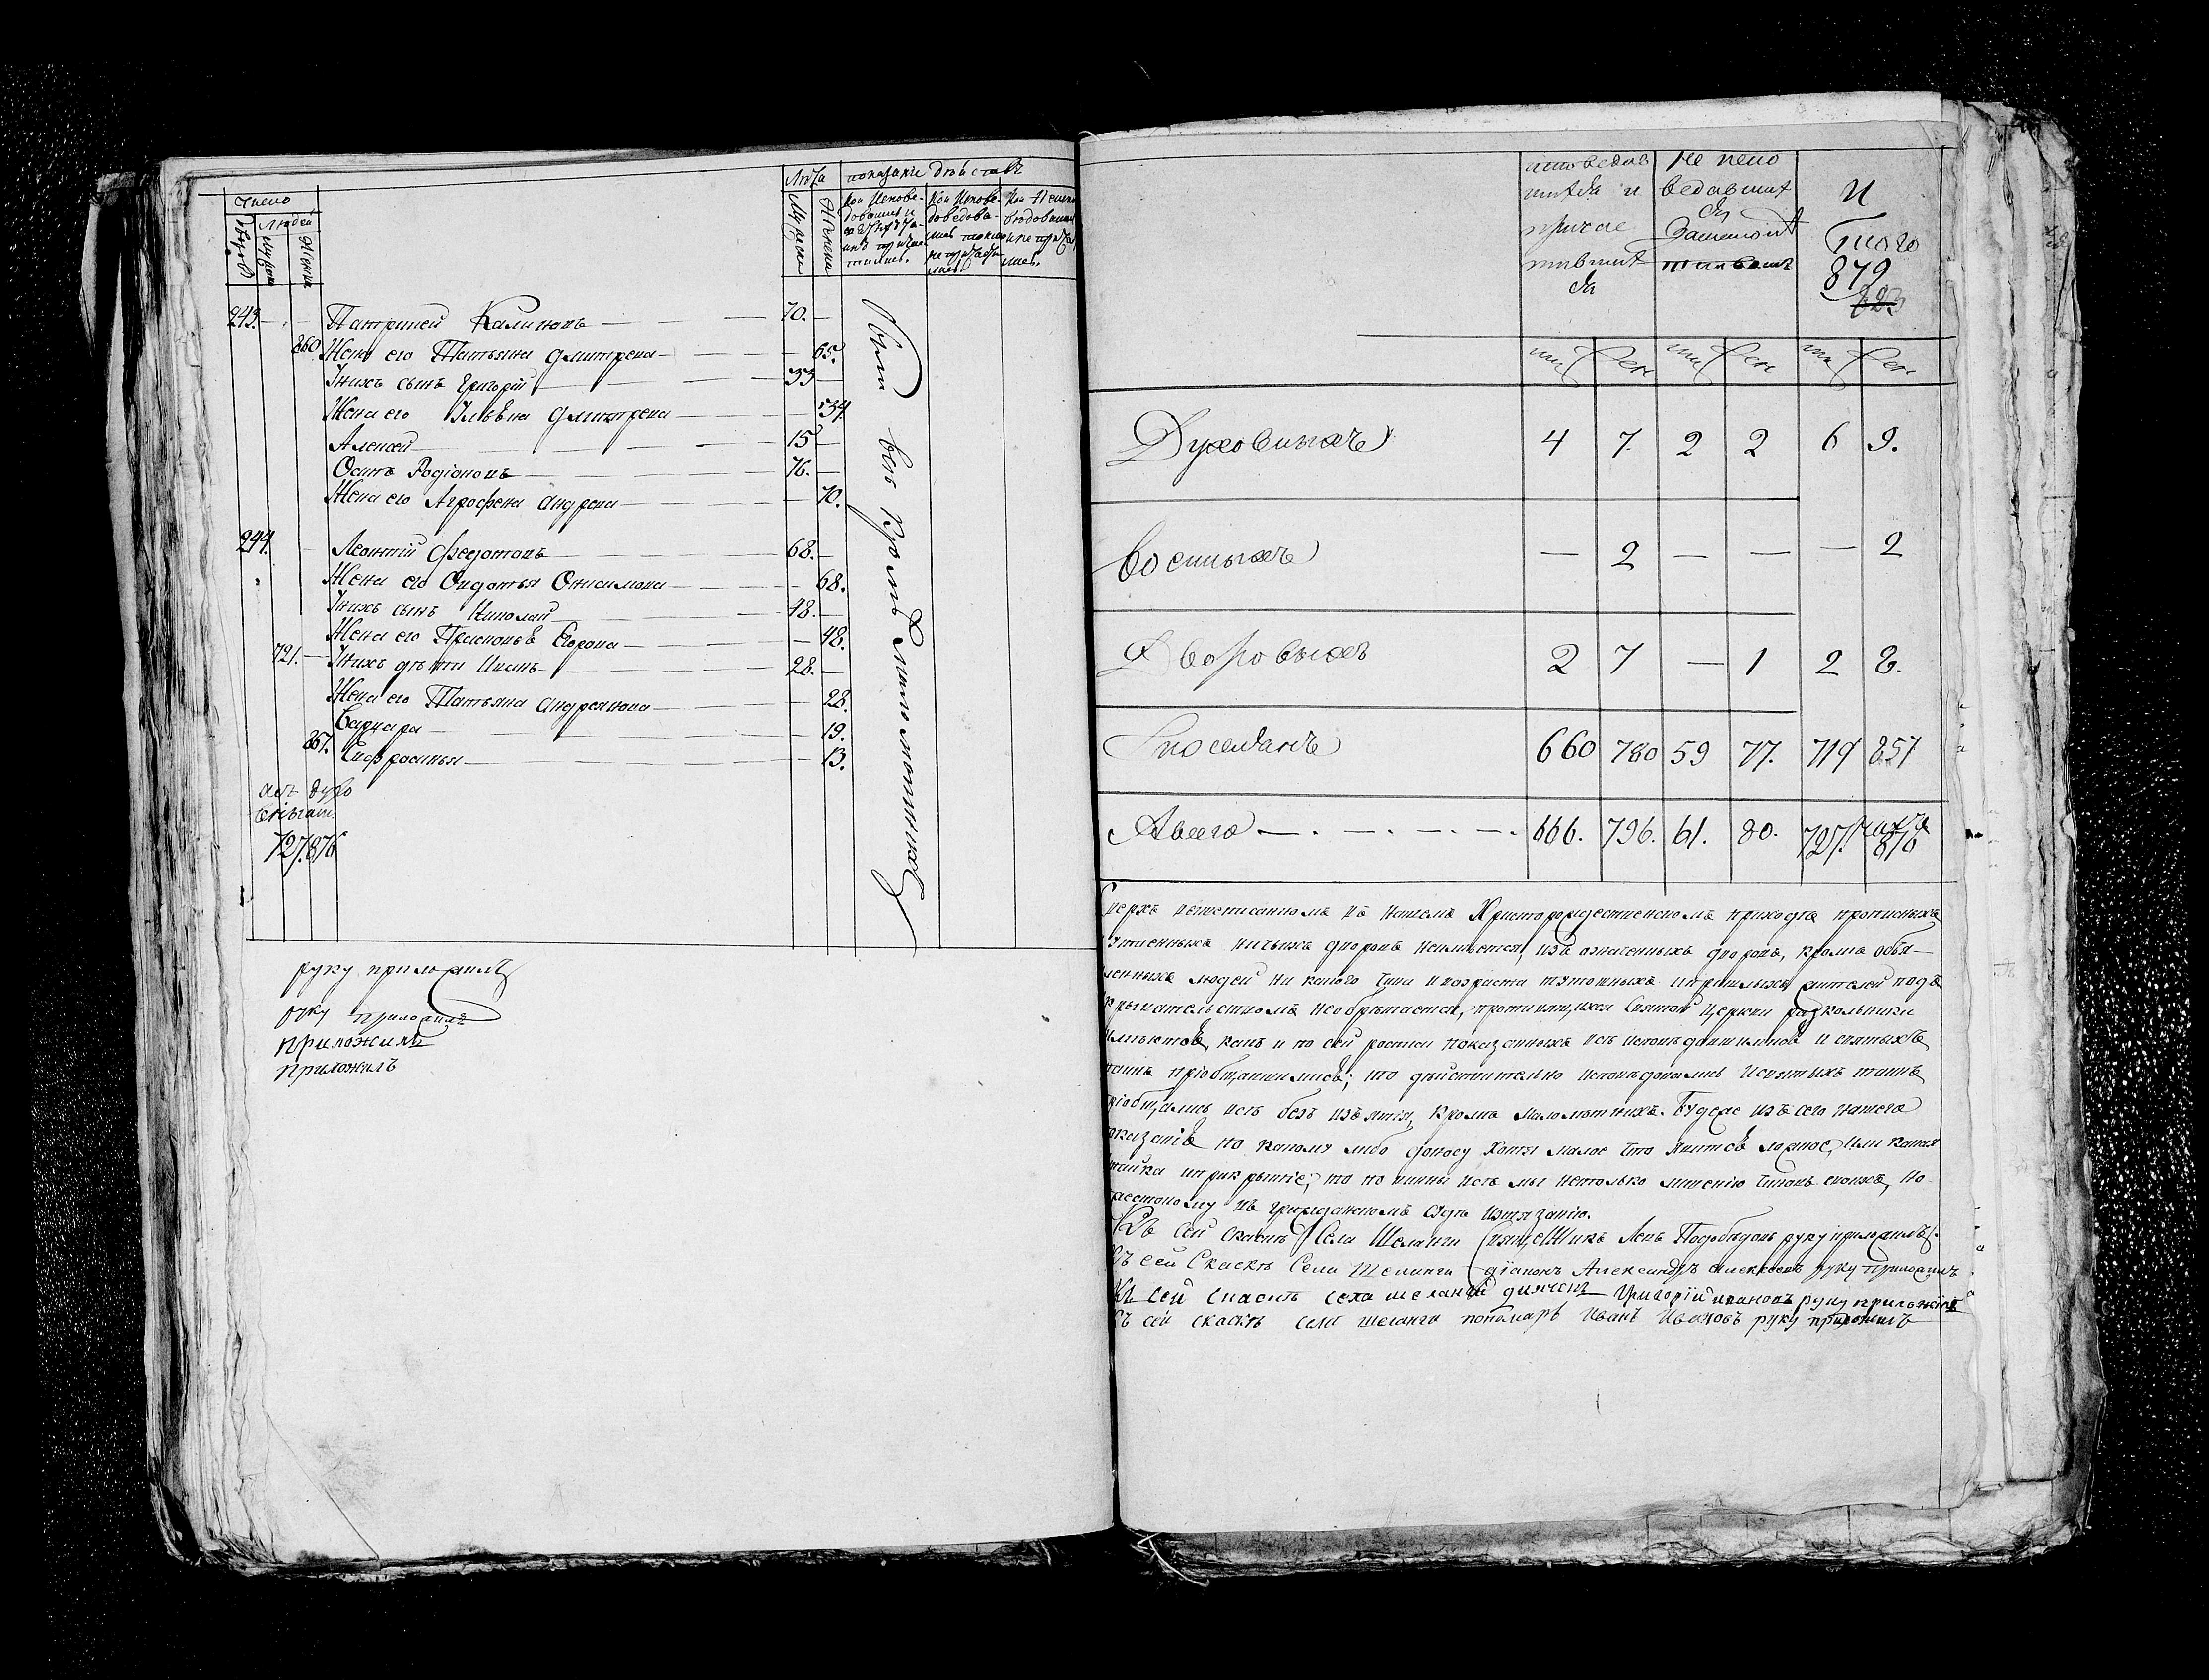 число
дворов
людей
мужеска
женска
лѣта
показание дѣйства
Мужеска
Женска
Кои Исповедовались и святыхъ таинъ причастились.
Кои Исповедовались токмо не причастились.
Кои Неисповедовались и не причастились.
243. Патрикей Калиновъ 70.
860. Жена его Татьяна Дмитрева 65.
Ихъ сынъ Григорій 33
Жена его Дмитрева 34
Алексей 15
Осипъ Родіоновъ 76.
Жена его Агрофена Андреева 70.
244. Леонтій Федотовъ 68.
Жена его Овдотья Онисимова 68.
Ихъ сынъ Николай 48.
Жена его Прасковья Егорова 48.
721. Ихъ дѣти Иванъ 28.
Жена его Татьяна Андреянова 28.
Варвара 19.
867. Евфросинья 13.
727. 876
были все кромѣ малолетнихъ
руку приложилъ
руку приложилъ
приложилъ
приложилъ
исповедав
шихся и
причас
тившихся
Не испо
ведавших
ся
И
Того
879
823
муж жен муж жен муж жен
Духовныхъ 4 7. 2 2 6 9.
военныхъ — 2 — — — 2
Дворовыхъ 2 7 — 1 2 8.
Поселянъ 660 780 59 77. 719 857
А всего 666. 796. 61. 80. 727. 876
Сверхъ вышеписанного въ нашемъ Христорождественскомъ приходѣ прописныхъ
ничьихъ дворовъ неимѣется, изъ означенныхъ дворовъ, кромѣ объя-
вленныхъ людей ни какого чина и возраста тутошныхъ и пришлыхъ жителей подъ
укрывательствомъ необрѣтается, противящихся Святой Церкви раскольники
имѣются, какъ и по сей росписи показанныхъ всѣ исповѣдавшимися и святыхъ
таинъ пріобщившимися; то действительно исповѣдовались и святыхъ таинъ
пріобщались всѣ безъ изъятія, кромѣ малолѣтнихъ. Буде же изъ сего нашего
показанія по какому либо доносу хотя малое что явится ложное, или какая
утайка и прикрытіе; то повинны всѣ мы нетолько лишенію чиновъ своихъ, но
и жестокому въ гражданскомъ судѣ истязанію.
Къ сей сказкѣ Села Шеланги Священникъ Левъ Подобѣдовъ руку приложилъ.
Къ сей Сказкѣ Села Шеланги діаконъ Александръ Алексѣевъ руку приложилъ
Къ сей сказкѣ села шеланги дьячекъ Григорій Ивановъ руку приложилъ
Къ сей сказкѣ села шеланги пономарь Иванъ Ивановъ руку приложилъ